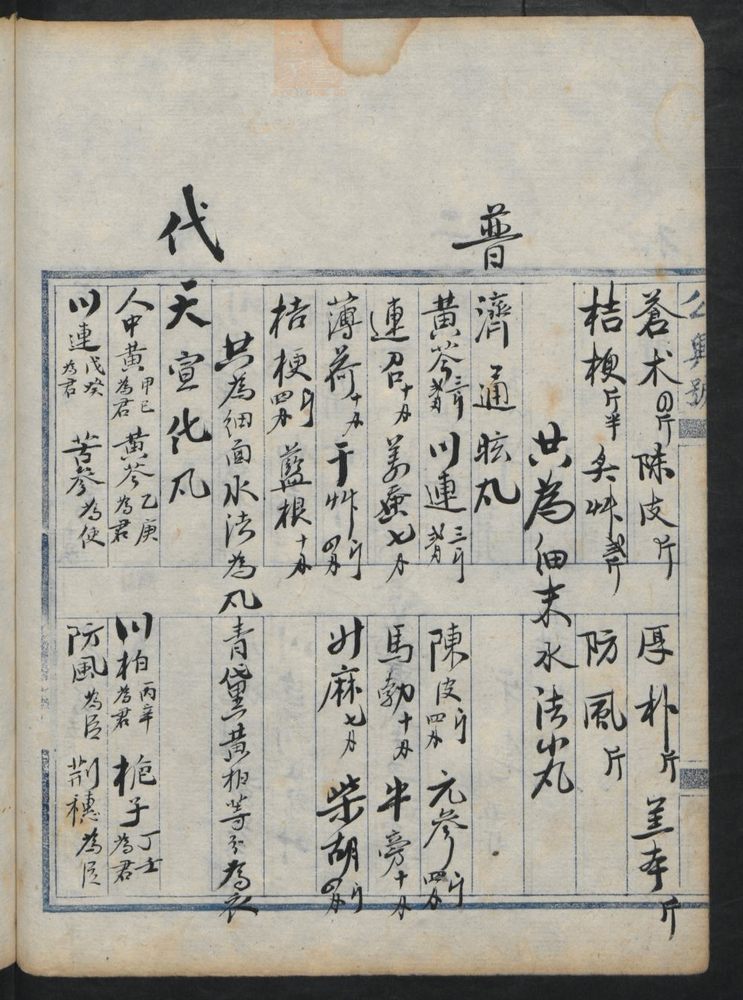 公興號
蒼朮四斤 陳皮斤 厚朴斤 羌本斤
桔梗斤半 炙艸斤 防風斤
共為细末水法小丸
普濟通眩丸
黃芩三斤 川連三斤 陳皮四 元參四
連召十 姜蚕七 馬勃十 牛旁十
薄荷十 干艸四 升麻七 柴胡四
桔梗四 藍根十
共為细面水法為丸青黛黄柏等分為衣
代天宣化丸
人中黃甲己為君 黃芩乙庚為君 川柏丙辛為君 梔子丁壬為君
川連戊癸為君 苦參為使 防風為臣 荊穗為臣